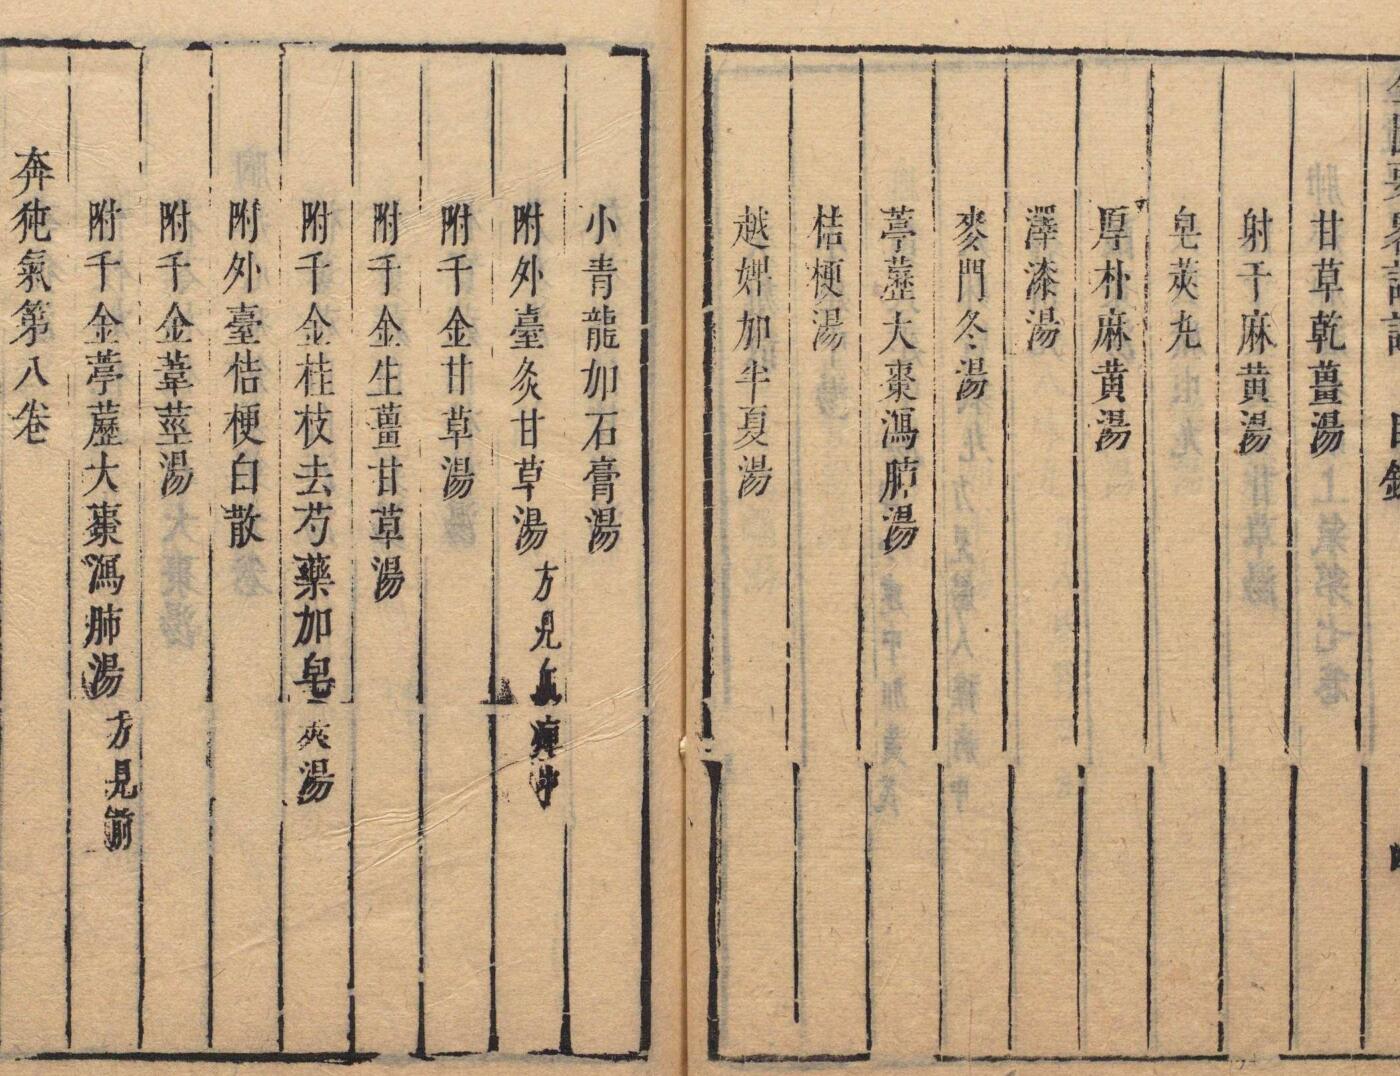 甘草乾薑湯
射干麻黄湯
皂莢丸
厚朴麻黄湯
澤漆湯
麥門冬湯
葶藶大棗瀉肺湯
桔梗湯
越婢加半夏湯
小青龍加石膏湯
附外臺炙甘草湯 方見
附千金甘草湯
附千金生薑甘草湯
附千金桂枝去芍藥加皂莢湯
附外臺桔梗白散
附千金葦莖湯
附千金葶藶大棗瀉肺湯 方見前
奔㹠氣第八卷